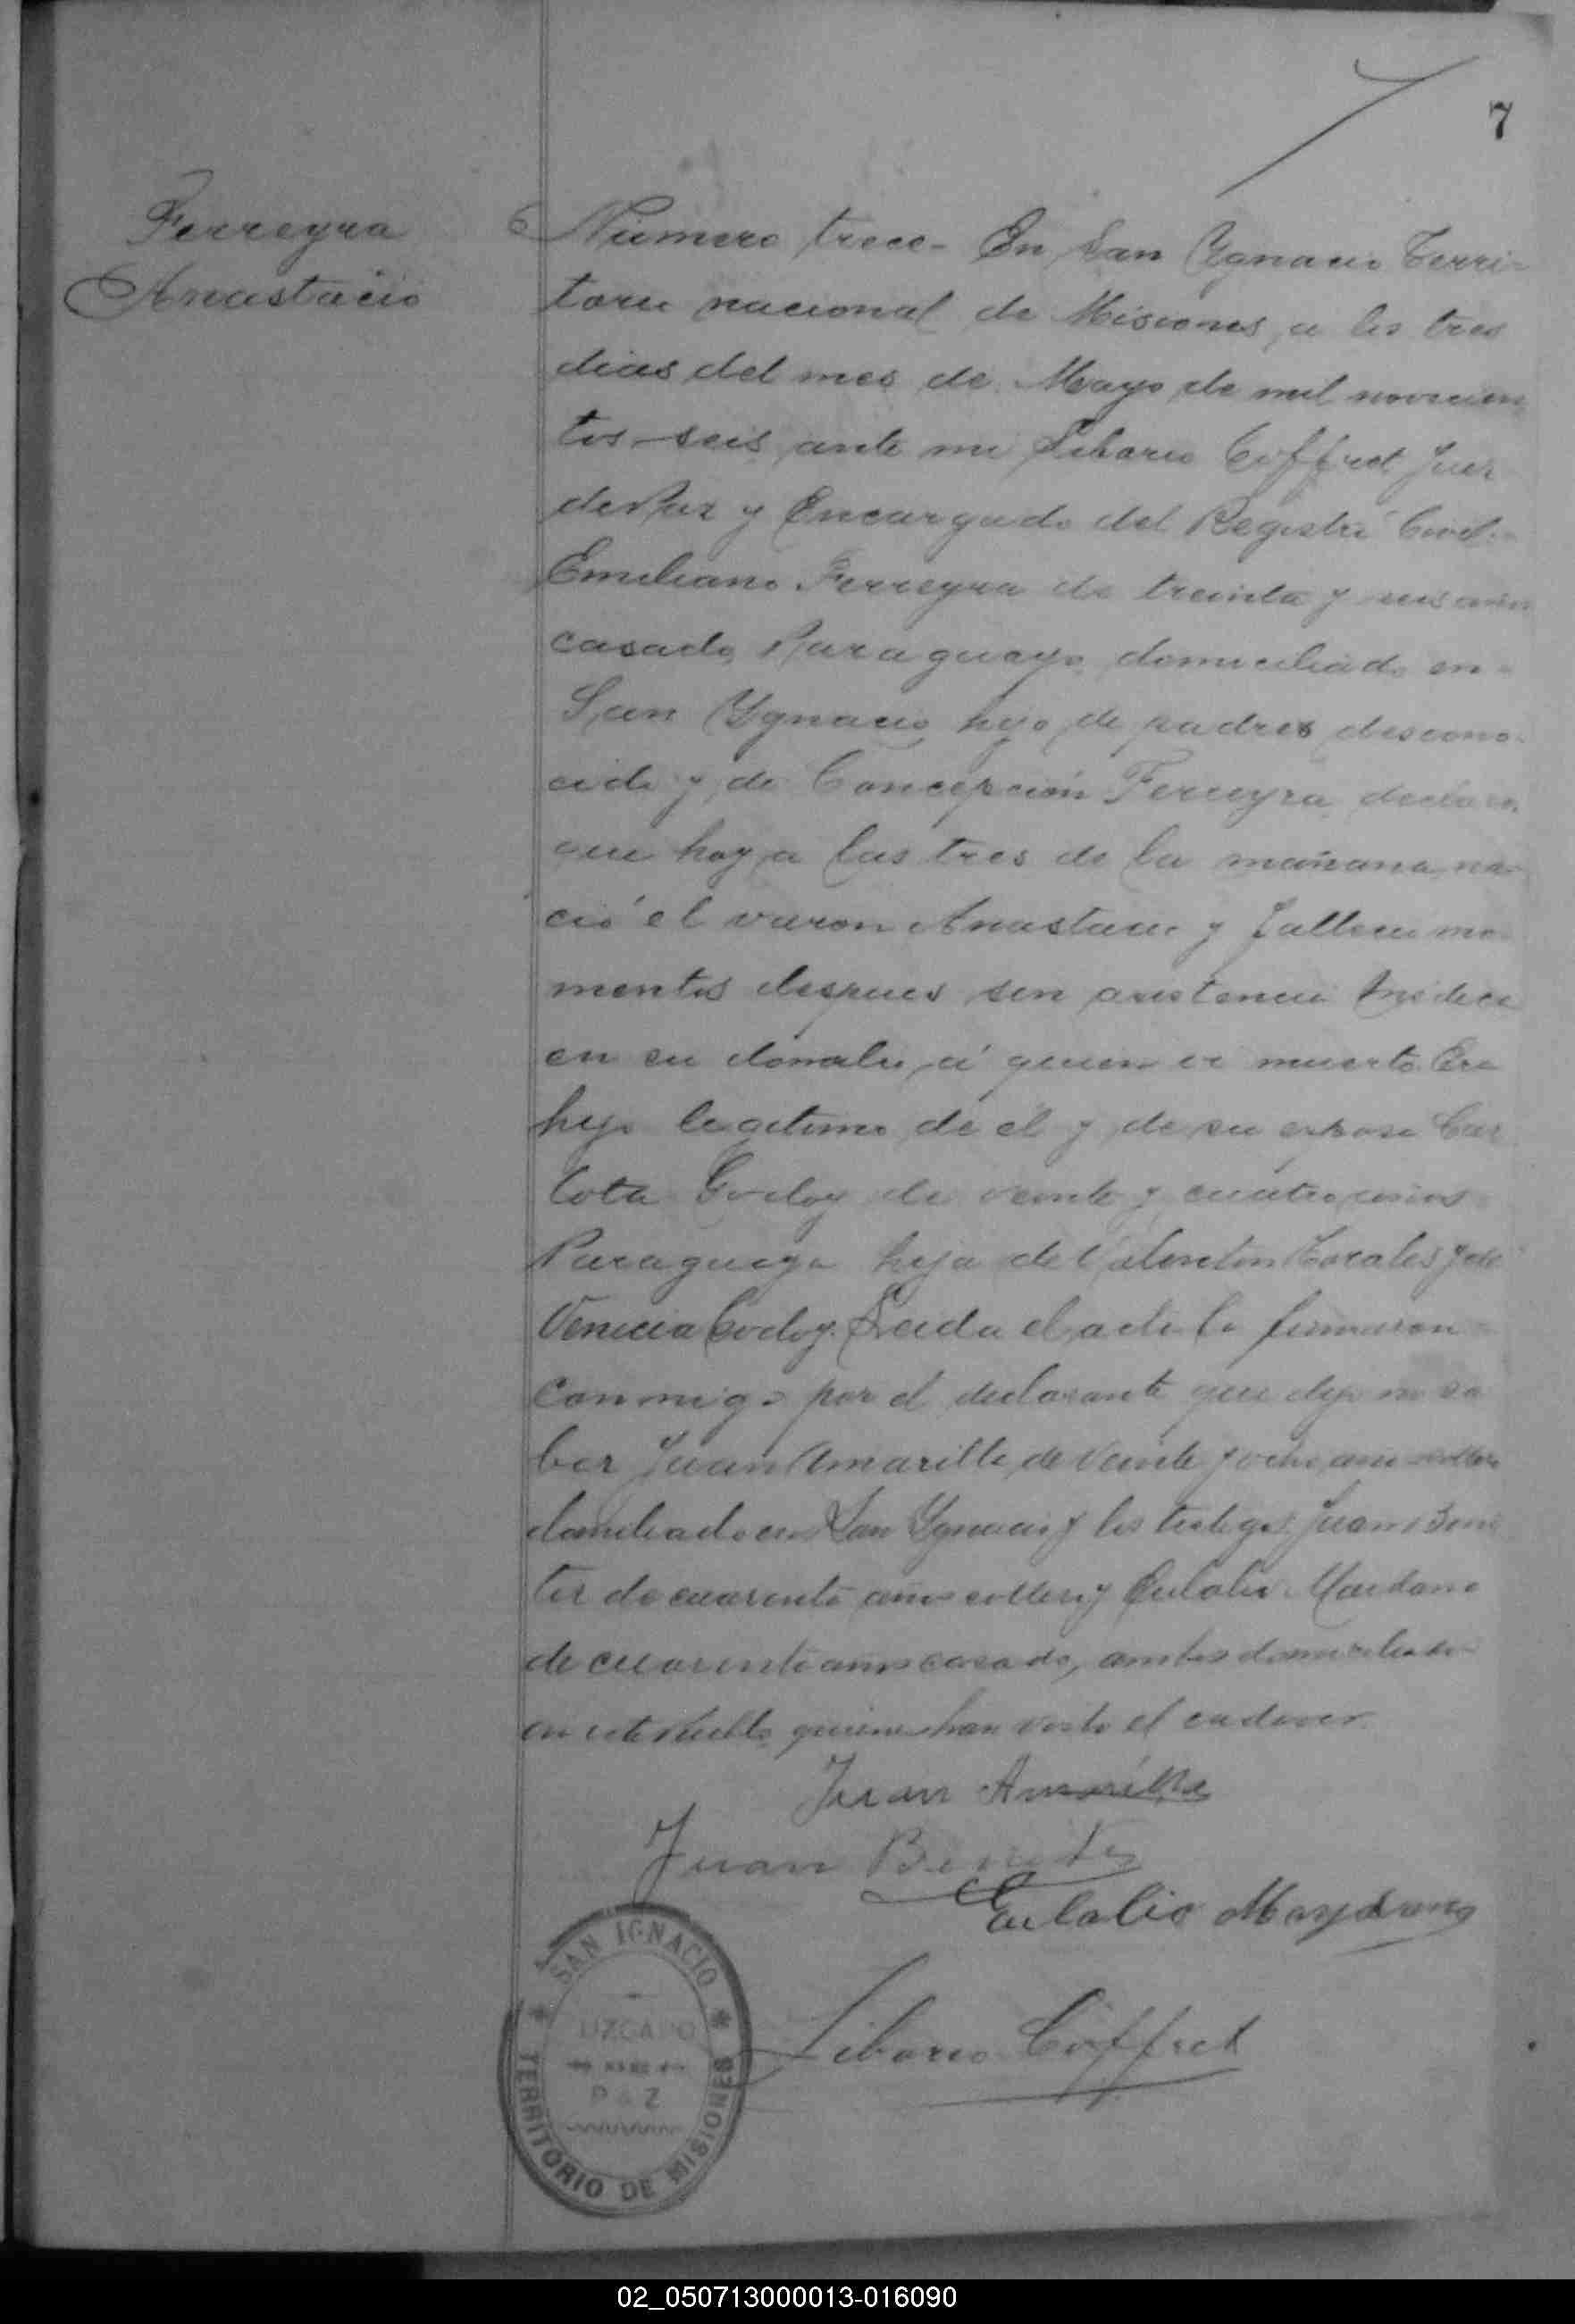 7
Ferreyra
Anastacio
Número trece- En San Ygnacio Terri-
torio nacional de Misiones, a los tres
dias del mes de Mayo de mil novecien
tos seis ante mi Liborio Coffret Juez
de Paz y Encargado del Registro Civil-
Emiliano Ferreyra de treinta y seis años
casado, Paraguayo, domiciliado en
San Ygnacio, hijo de padres descono-
cido y de Concepción Ferreyra, declaro,
que hoy a las tres de la mañana na-
ció el varon Anastacio y fallecio mo-
mentos despues sin asistencia medica
en su domilio, á quien vi muerto. Era
hijo legitimo de él y de su esposa Car
lota Godoy de veinte y cuatro años
Paraguaya hija de Valentin Morales y de
Venecia Godoy. Leida el acta la firmaron
conmigo por el declarante que dijo no sa
ber Juan Amarilla de veinte y ocho años soltero
domiliado en San Ygnacio y los testigos Juan Beni
tez de cuarenta años soltero y Eulalio Maidana
de cuarenta años casado, ambos domiciliados
en este Pueblo, quienes han visto el cadaver.
Juan Amarilla
Juan Benitez
Eulalio Maydana
Liborio Coffret
SAN IGNACIO
UZGADO
P Z
TERRITORIO DE MISIONES
02_050713000013-016090